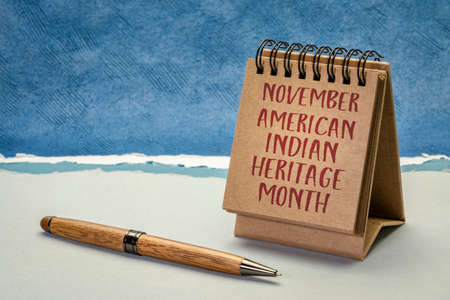 NOVEMBER
AMERICAN
INDIAN
HERITAGE
MONTH